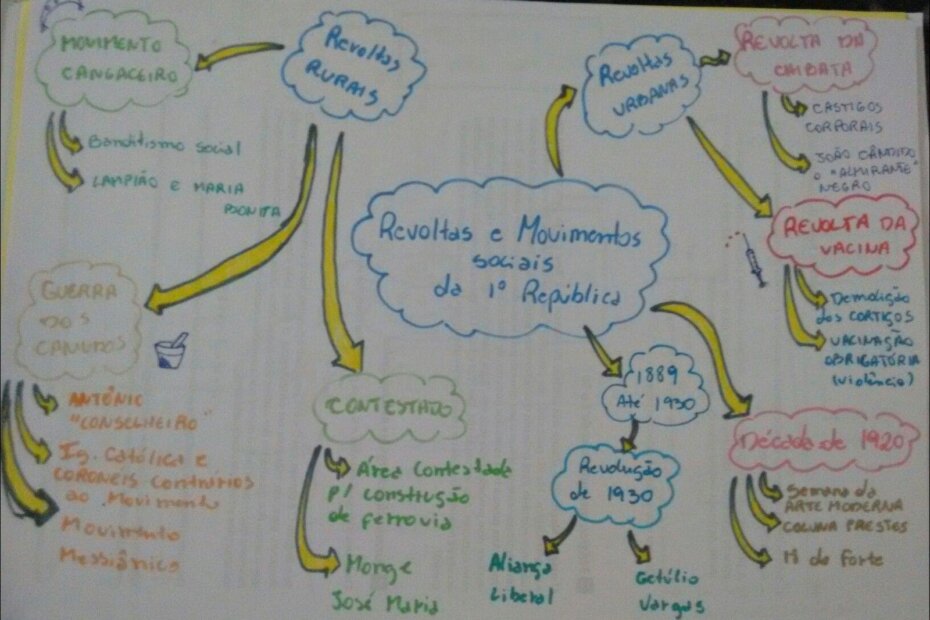 Revoltas e Movimentos
sociais
da 1º República
Revoltas
RURAIS
MOVIMENTO
CANGACEIRO
Banditismo social
LAMPIÃO E MARIA
BONITA
GUERRA
DOS
CANUDOS
ANTÔNIO
"CONSELHEIRO"
Ig. Católica e
CORONEIS CONTRÁRIOS
ao Movimento
Movimento
Messiânico
CONTESTADO
Área Contestada
p/ construção
de ferrovia
Monge
José Maria
Revoltas
URBANAS
REVOLTA DA
CHIBATA
CASTIGOS
CORPORAIS
JOÃO CÂNDIDO
O "ALMIRANTE"
NEGRO
REVOLTA DA
VACINA
Demolição
dos CORTIÇOS
VACINAÇÃO
OBRIGATÓRIA
(violência)
1889
Até 1930
Revolução
de 1930
Aliança
Liberal
Getúlio
Vargas
Década de 1920
Semana da
ARTE MODERNA
COLUNA PRESTES
do Forte